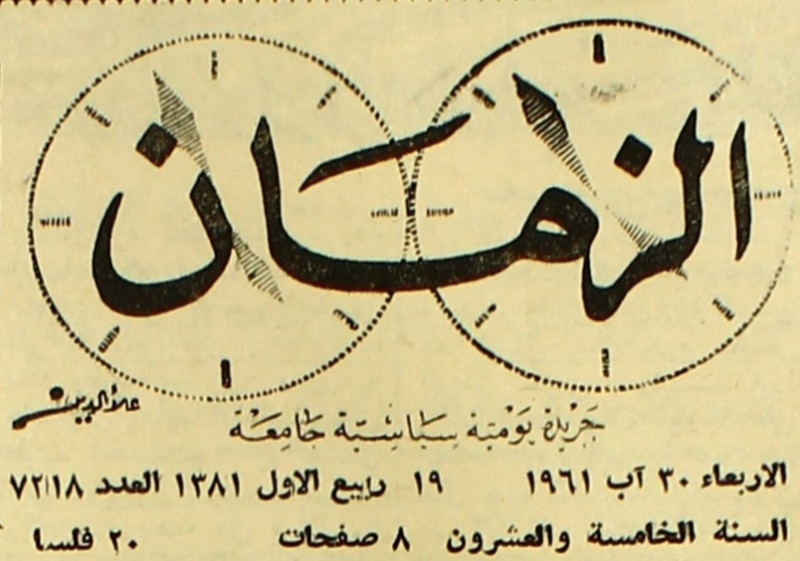 الزمان
علاءالدين
جريدة يومية سياسية جامعة
الاربعاء ٣٠ آب ١٩٦١ ١٩ ربيع الاول ١٣٨١ العدد ٧٢١٨
السنة الخامسة والعشرون ٨ صفحات ٢٠ فلسا